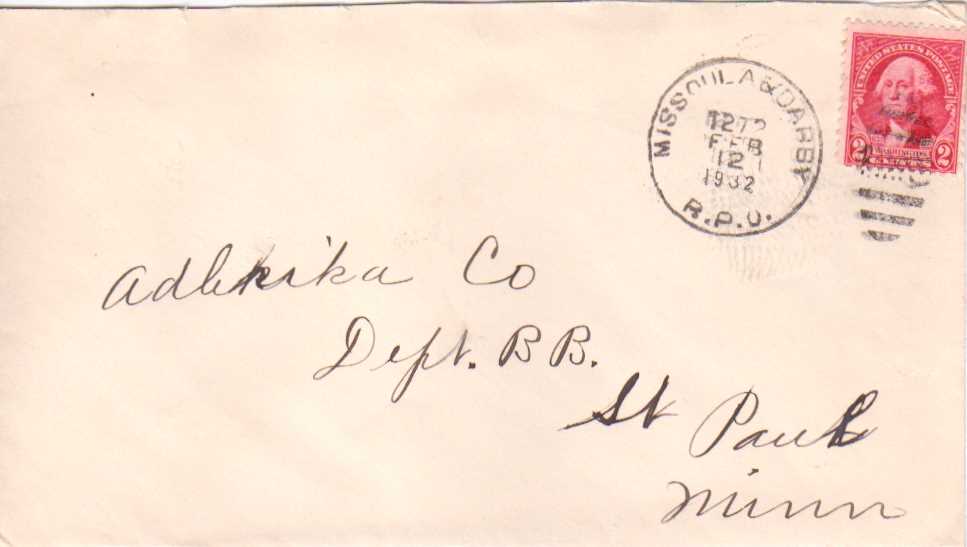 UNITED STATES POSTAGE
WASHINGTON
2 CENTS 2
MISSOULA & DARBY
1272
FEB
12
1932
R.P.O.
Adlerika Co
Dept. B B.
St Paul
Minn